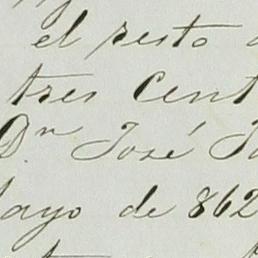 el resto
tres Cent
Dn José
Mayo de 862